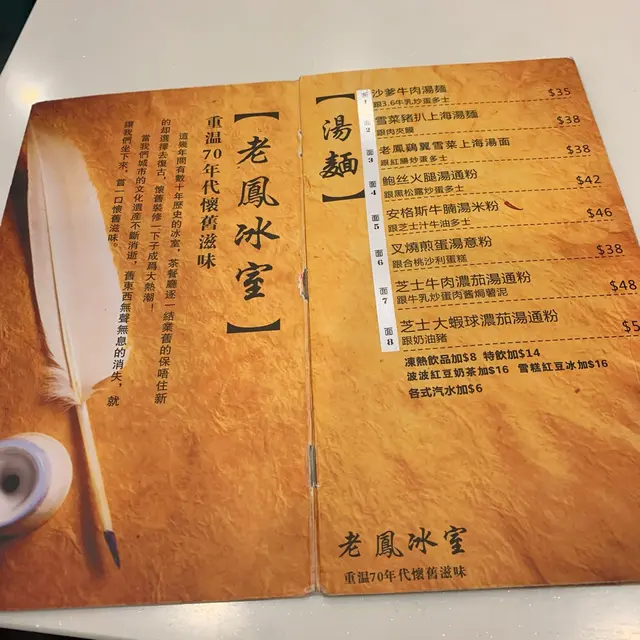 【老鳳冰室】
重温70年代懷舊滋味
這幾年間有數十年歷史的冰室，茶餐廳逐一結業舊的保唔住新
的却選擇去復古，懷舊裝修一下子成爲大熱潮！
當我們城市的文化遺産不斷消逝，舊東西無聲無息的消失，就
讓我們坐下來，嘗一口懷舊滋味。
【湯麵】
面1 沙爹牛肉湯麵 $35
跟3.6牛乳炒蛋多士
面2 雪菜豬扒上海湯麵 $38
跟肉夾饃
面3 老鳳鷄翼雪菜上海湯面 $38
跟紅腸炒蛋多士
面4 鮑丝火腿湯通粉 $42
跟黑松露炒蛋多士
面5 安格斯牛腩湯米粉 $46
跟芝士汁牛油多士
面6 叉燒煎蛋湯意粉 $38
跟合桃沙利蛋糕
面7 芝士牛肉濃茄湯通粉 $48
跟牛乳炒蛋肉醬焗薯泥
面8 芝士大蝦球濃茄湯通粉 $5
跟奶油豬
凍熱飲品加$8 特飲加$14
波波紅豆奶茶加$16 雪糕紅豆冰加$16
各式汽水加$6
老鳳冰室
重温70年代懷舊滋味